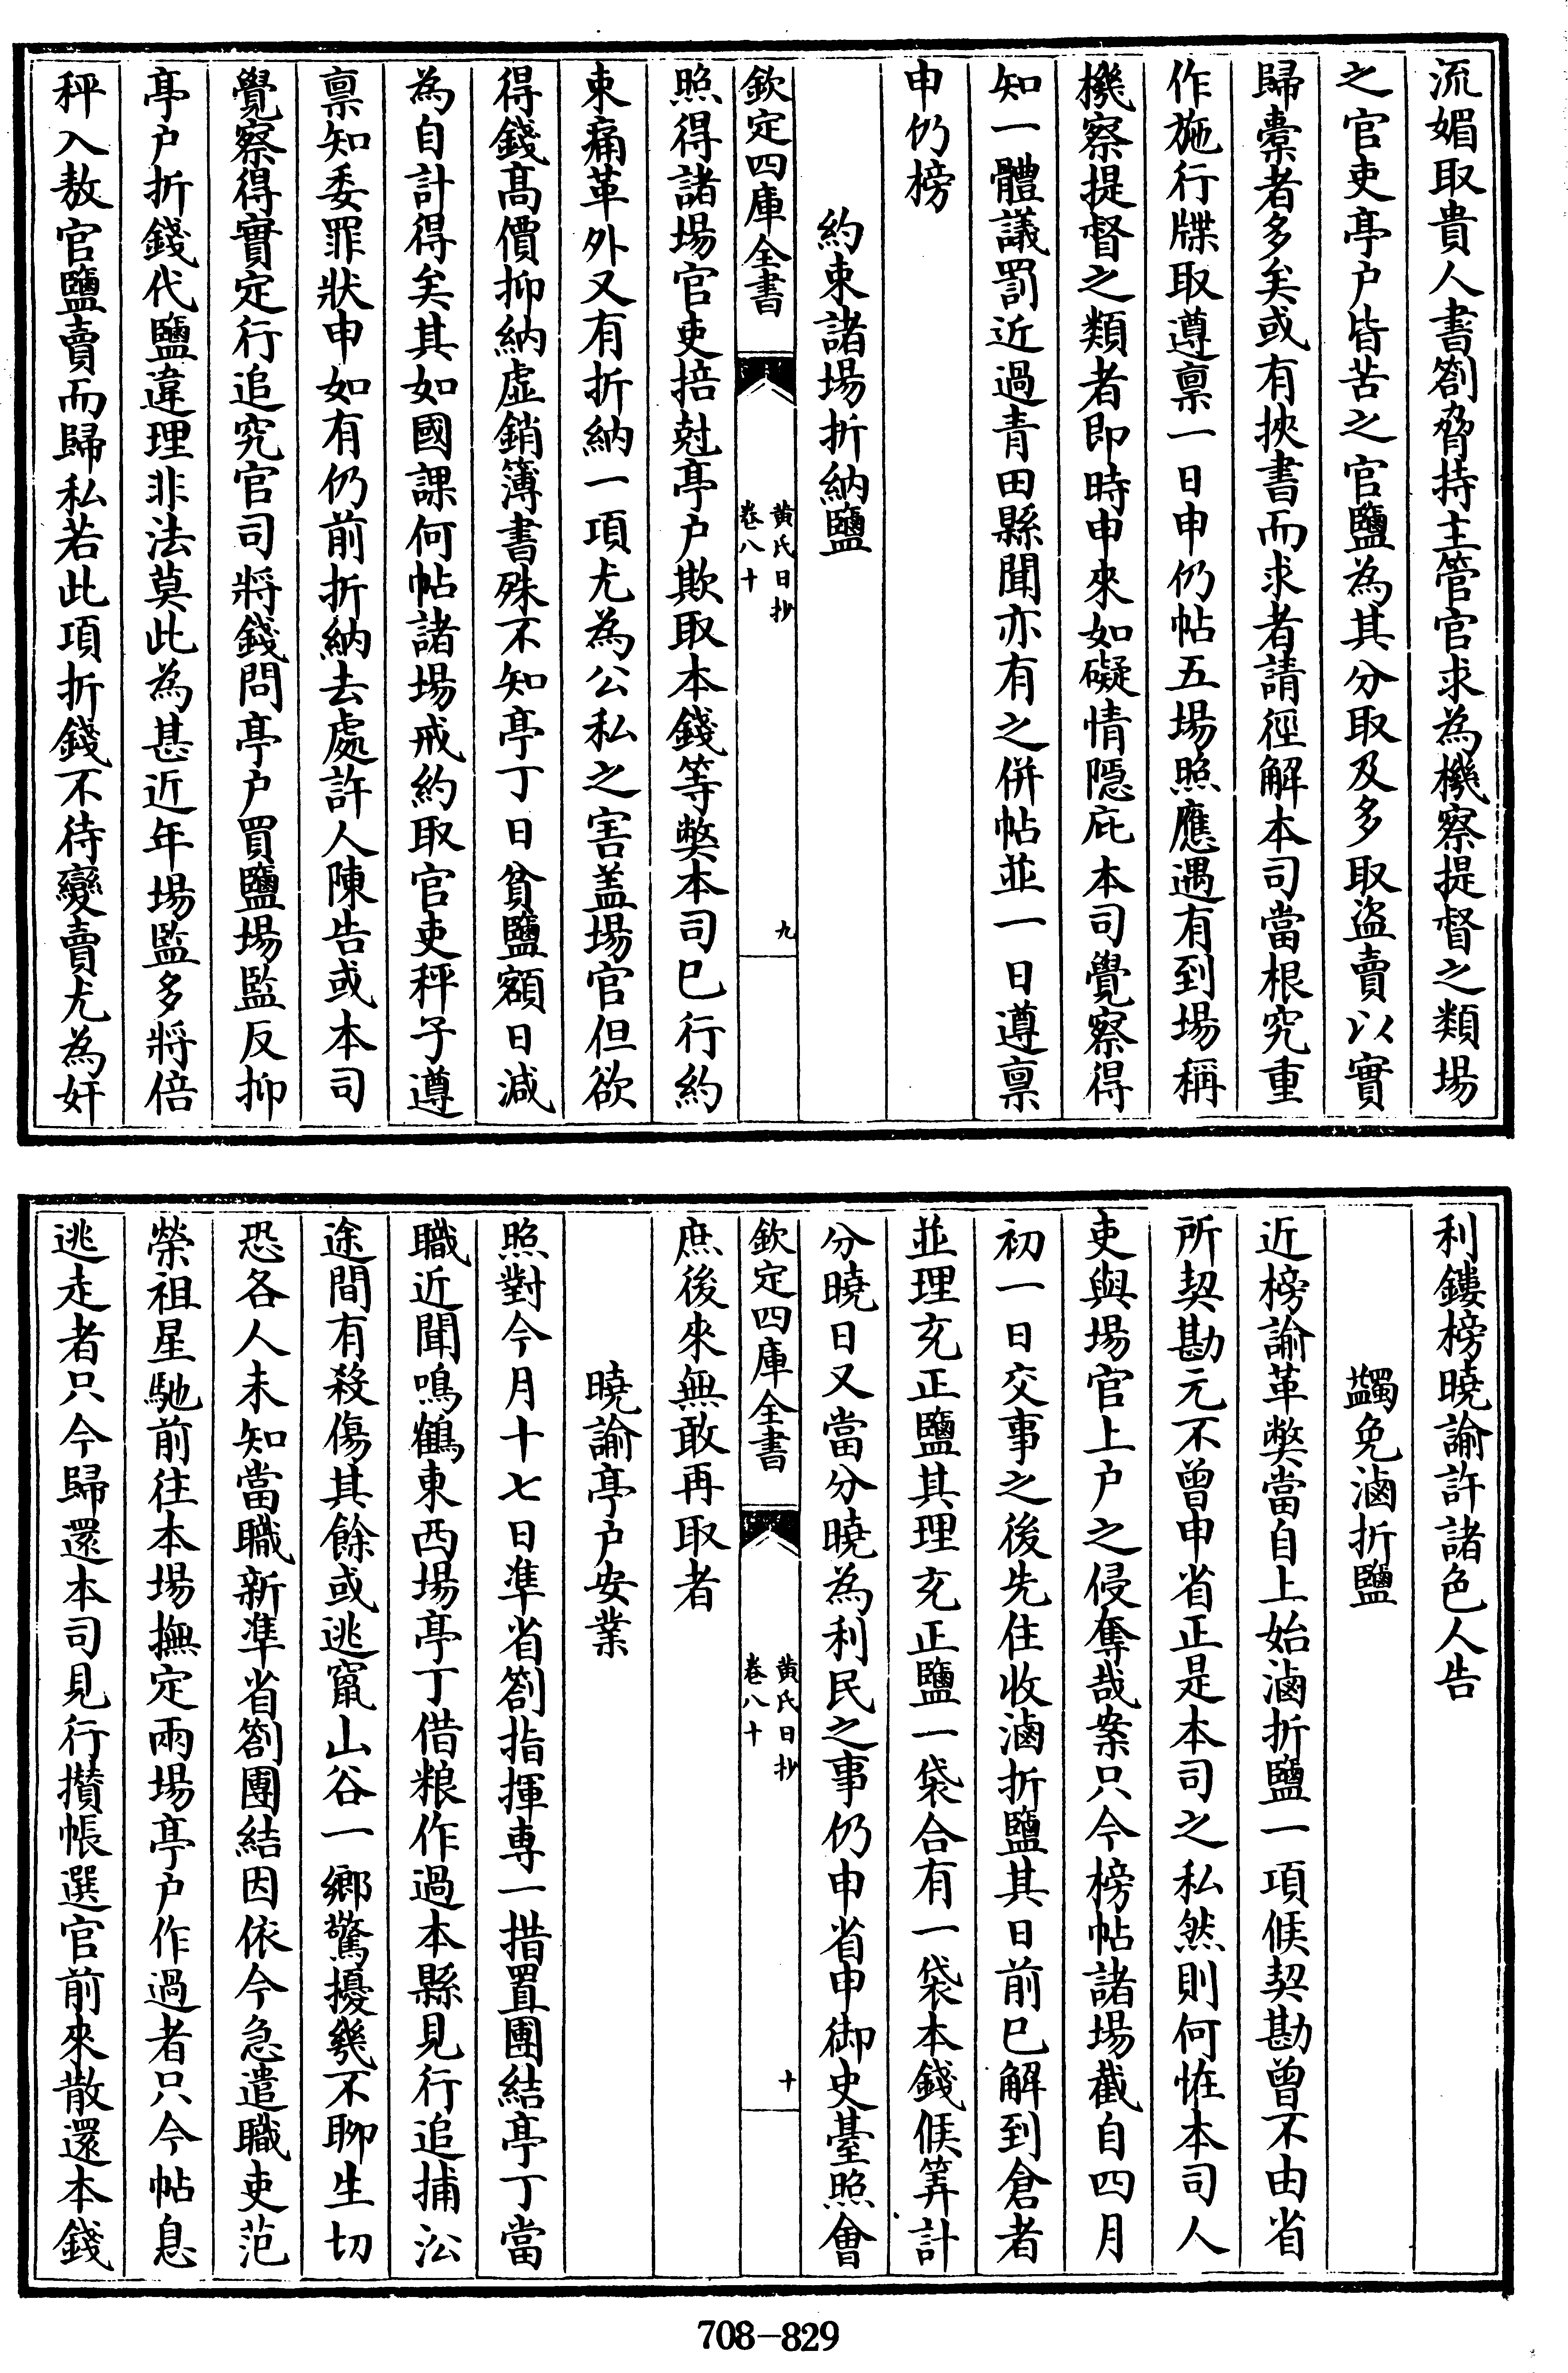 流媚取貴人書劄脅持主管官求為機察提督之類場
之官吏亭户皆苦之官鹽為其分取及多取盜賣以實
歸橐者多矣或有挾書而求者請徑解本司當根究重
作施行牒取遵禀一日申仍帖五場照應遇有到場稱
機察提督之類者即時申來如礙情隠庇本司覺察得
知一體議罰近過青田縣聞亦有之併帖並一日遵禀
申仍榜
約束諸場折納鹽
欽定四庫全書
黄氏日抄
卷八十
九
照得諸場官吏掊尅亭户欺取本錢等弊本司已行約
束痛革外又有折納一項尤為公私之害盖場官但欲
得錢髙價抑納虚銷簿書殊不知亭丁日貧鹽額日減
為自計得矣其如國課何帖諸場戒約取官吏秤子遵
禀知委罪狀申如有仍前折納去處許人陳告或本司
覺察得實定行追究官司將錢問亭户買鹽場監反抑
亭户折錢代鹽違理非法莫此為甚近年場監多將倍
秤入敖官鹽賣而歸私若此項折錢不待變賣尤為奸
利鏤榜曉諭許諸色人告
蠲免滷折鹽
近榜諭革弊當自上始滷折鹽一項候契勘曾不由省
所契勘元不曾申省正是本司之私然則何恠本司人
吏與場官上户之侵奪哉案只今榜帖諸場截自四月
初一日交事之後先住收滷折鹽其日前已解到倉者
並理充正鹽其理充正鹽一袋合有一袋本錢候筭計
分曉日又當分曉為利民之事仍申省申御史臺照會
欽定四庫全書
黄氏日抄
卷八十
十
庶後來無敢再取者
曉諭亭户安業
照對今月十七日凖省劄指揮専一措置團結亭丁當
職近聞鳴鶴東西場亭丁借粮作過本縣見行追捕㳂
途間有殺傷其餘或逃竄山谷一鄉驚擾幾不聊生切
恐各人未知當職新凖省劄團結因依今急遣職吏范
榮祖星馳前往本場撫定兩場亭户作過者只今帖息
逃走者只今歸還本司見行攅帳選官前來散還本錢
708-829